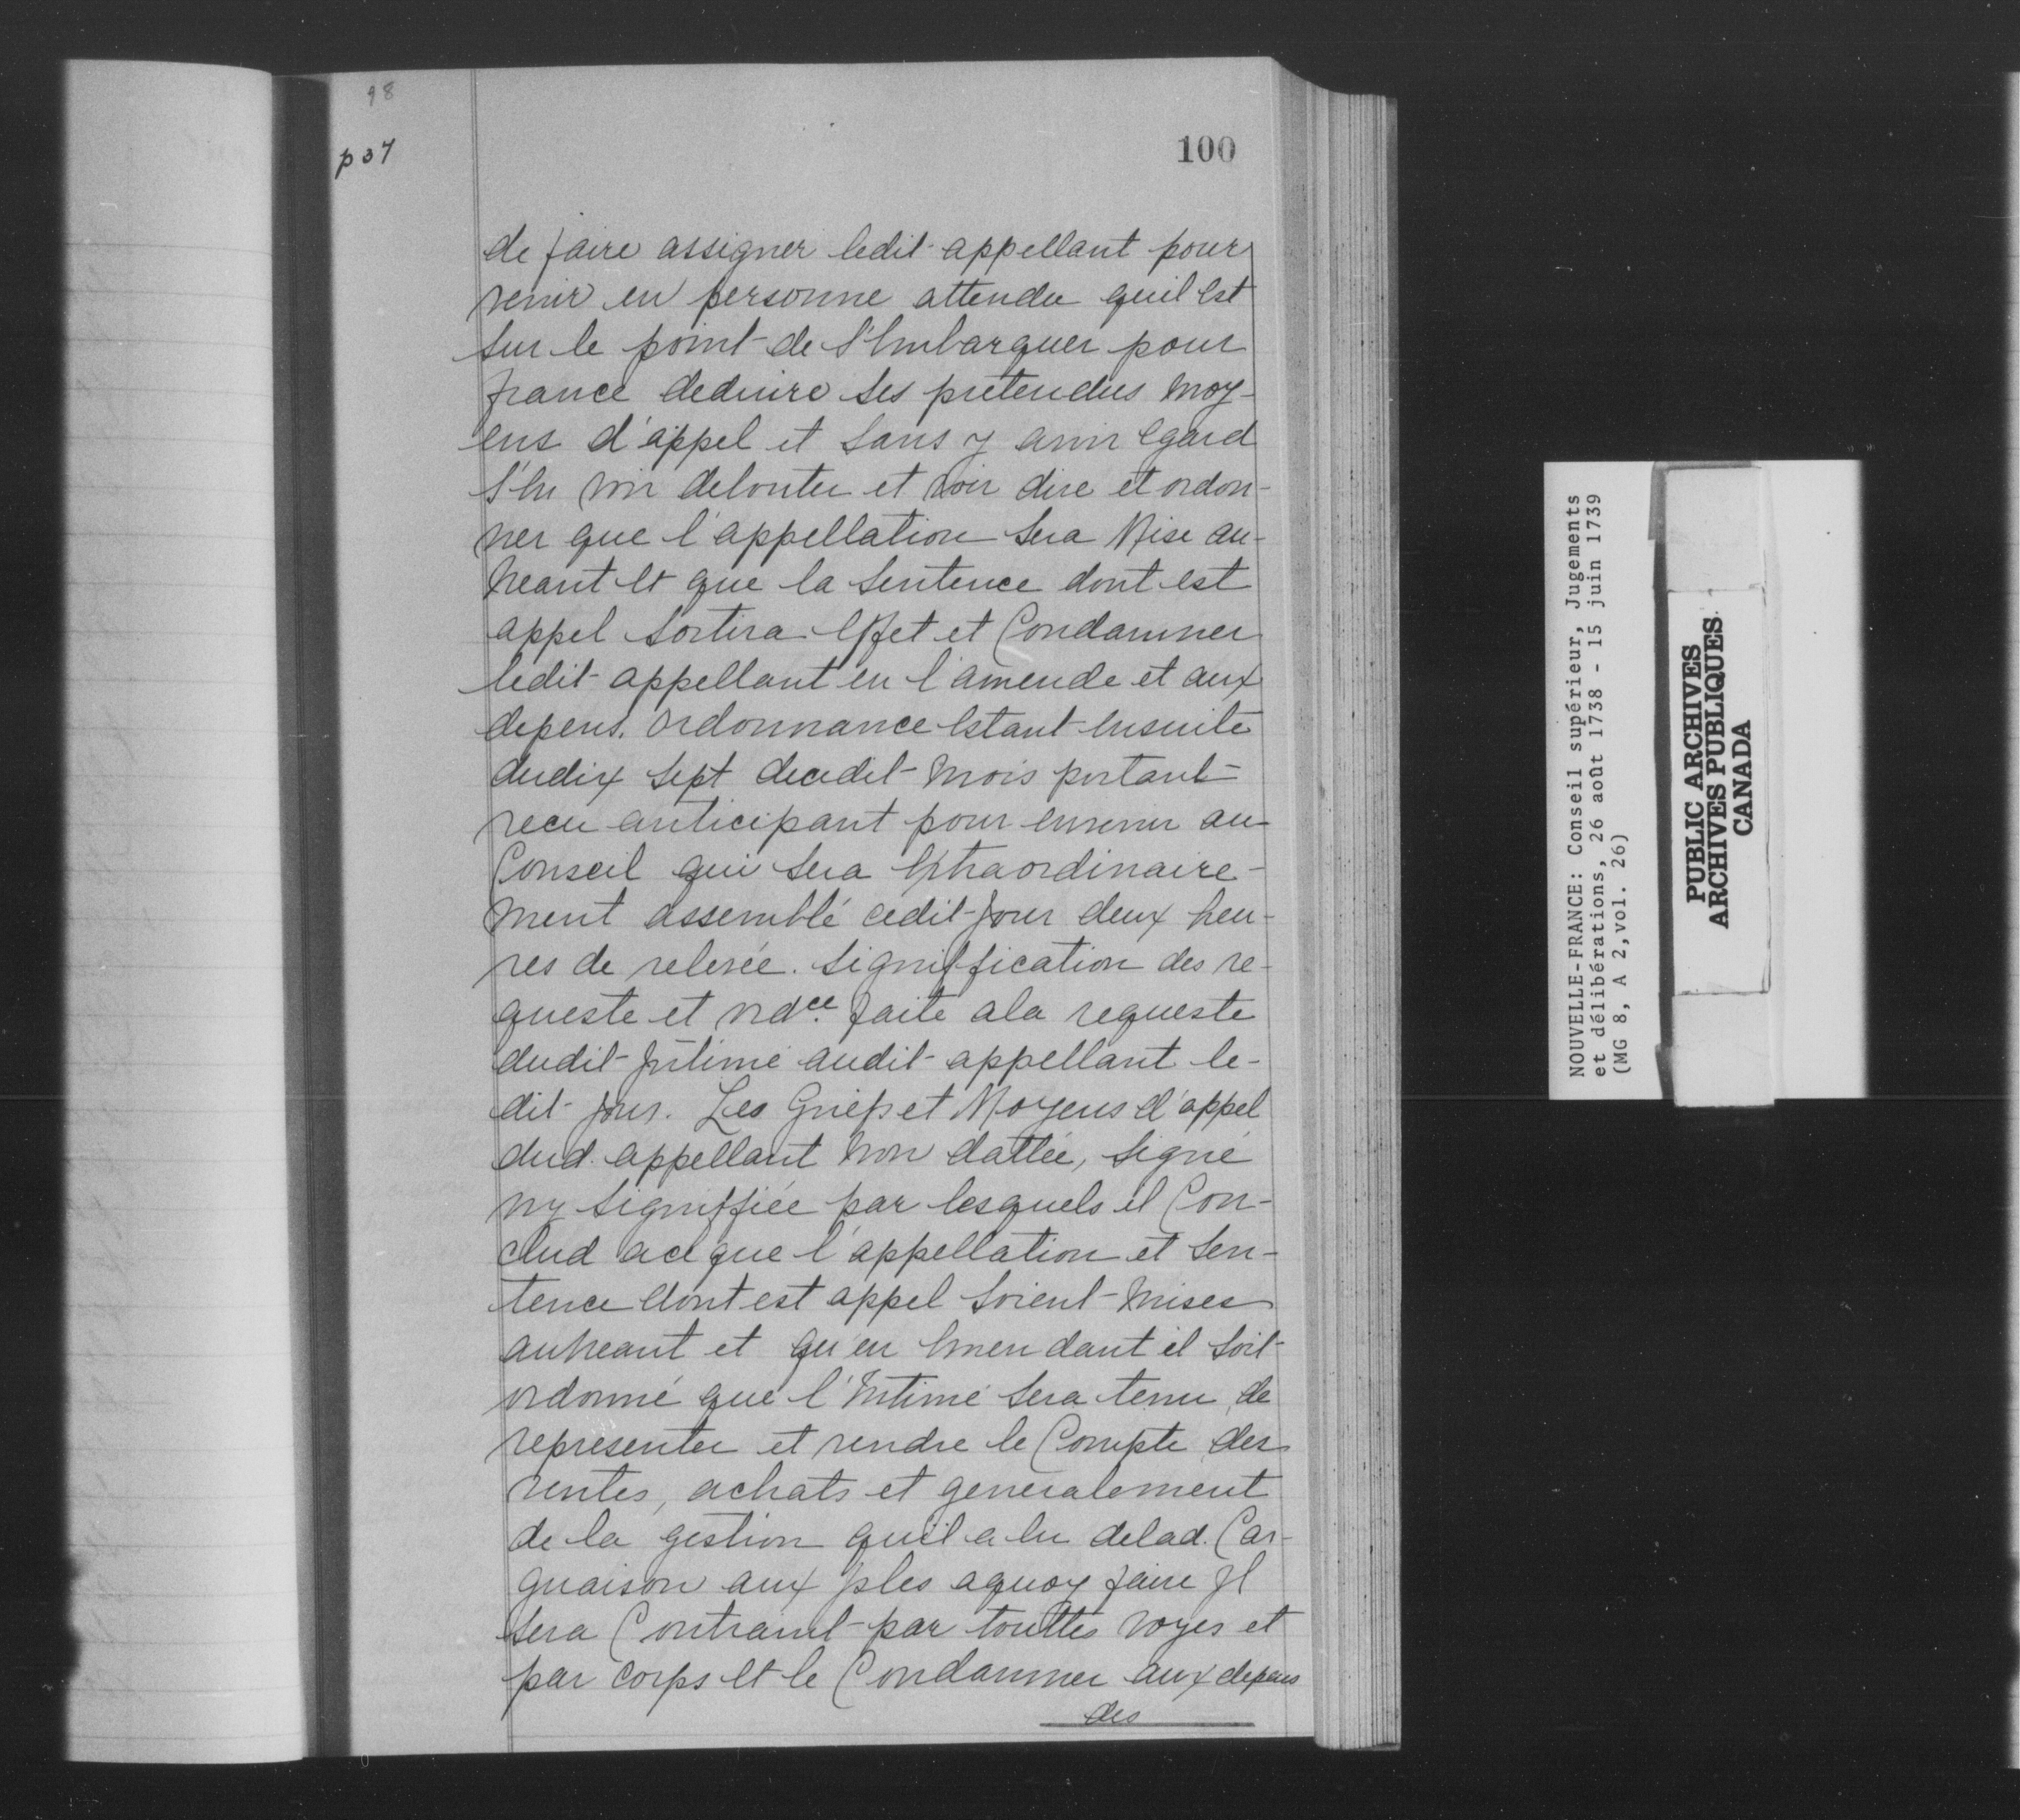 98
p 37
100
de faire assigner ledit appellant pour
venir en personne attendu quil est
sur le point de s'Embarquer pour
france deduire ses pretendus moy-
ens d'appel et sans y avoir Egard
s'en voir debouter et voir dire et ordon-
ner que l'appellation sera Mise au-
neant et que la sentence dont est
appel sortira Effet et Condamner
ledit appellant en l'amende et aux
depens. ordonnance Estant Ensuite
dudix sept decedit mois portant
recu anticipant pour envenir au
Conseil qui sera Extraordinaire-
ment assemblé cedit Jour deux heu-
res de relevée. signiffication des re-
queste et ordce. faite ala requeste
dudit Jntimé audit appellant le-
dit Jour. Les Griefs et Moyens d'appel
dud. appellant non dattée, signé
ny signiffiée par lesquels il Con-
clud aceque l'appellation et sen-
tence dont est appel soient mises
auneant et qu'en Emendant il soit
ordonné que l'Intimé sera tenu de
representer et rendre le Compte des
ventes, achats et generalement
de la gestion quil a Eu delad. Car-
guaison aux Isles aquoy faire Jl
sera Contraint par touttes voyes et
par corps et le Condamner aux depens
des
NOUVELLE-FRANCE: Conseil supérieur, Jugements
et délibérations, 26 août 1738 - 15 juin 1739
(MG 8, A 2,vol. 26)
PUBLIC ARCHIVES
ARCHIVES PUBLIQUES
CANADA